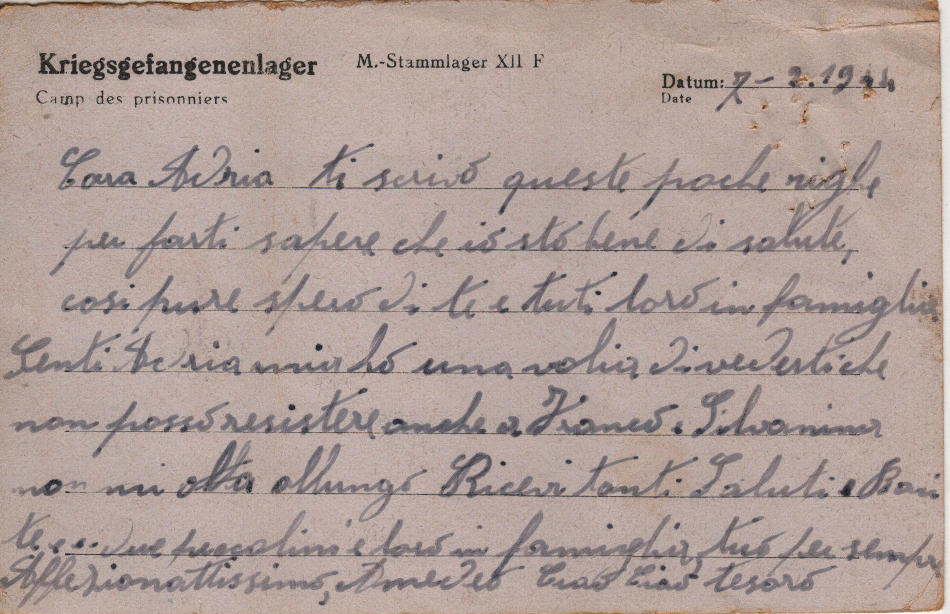 Kriegsgefangenenlager M.-Stammlager XII F
Camp des prisonniers
Datum: 7-2.1944
Date
Cara Adria ti scrivo queste poche righe
per farti sapere che io stò bene di salute,
cosi pure spero di te e tuti loro in famiglia
Senti Adria mia ho una volia di vederti che
non posso resistere anche a Franco e Silvanina
non mi allungo Ricevi tanti Saluti e Baci
te e due piccolini e loro in famiglia, tuo per sempre
Affezionattissimo, Amedeo Ciao Ciao tesoro